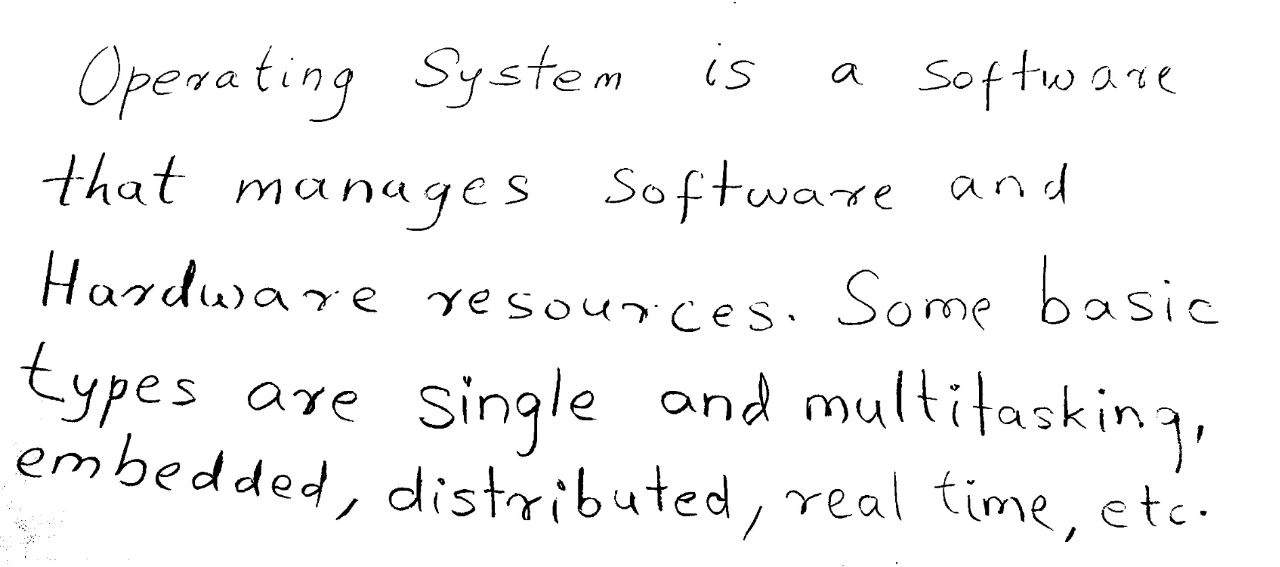 Operating System is a software
that manages Software and
Hardware resources. Some basic
types are single and multitasking,
embedded, distributed, real time, etc.